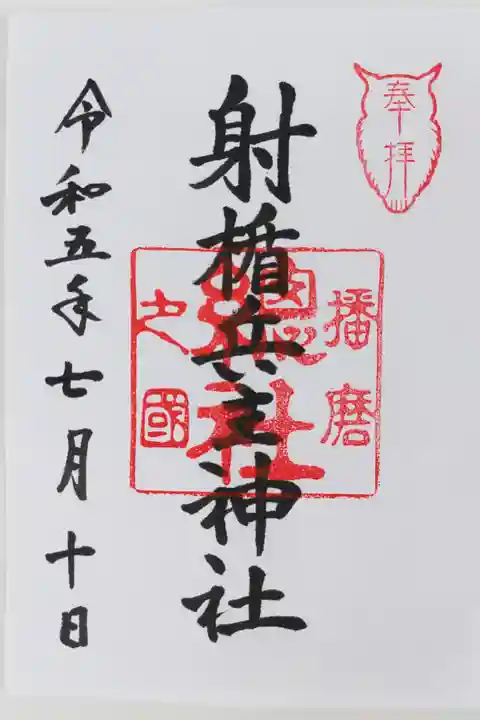 奉拝
播磨
之國
総社
射楯兵主神社
令和五年七月十日